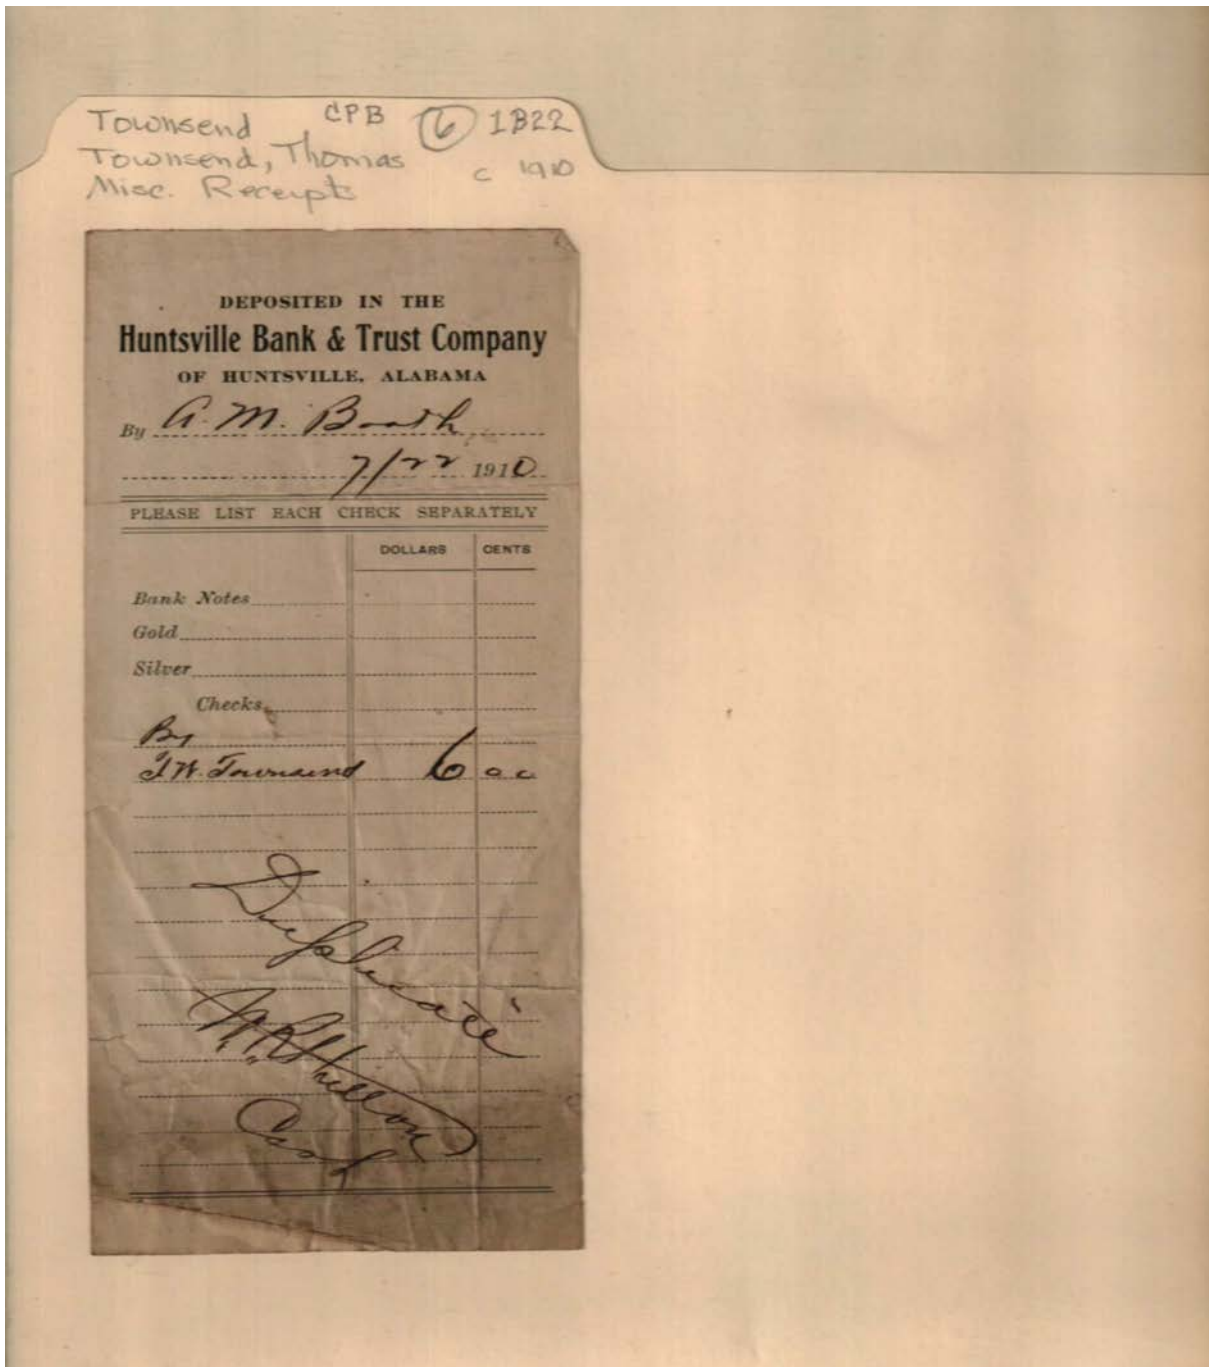 Townsend CPB 6 1B22
Townsend, Thomas c 1910
Misc. Receipts
DEPOSITED IN THE
Huntsville Bank & Trust Company
OF HUNTSVILLE, ALABAMA
By A. M. Booth
7/22 1910
PLEASE LIST EACH CHECK SEPARATELY
DOLLARS CENTS
Bank Notes
Gold
Silver
Checks
By
T W. Townsend 6 00
Duplicate
Cash